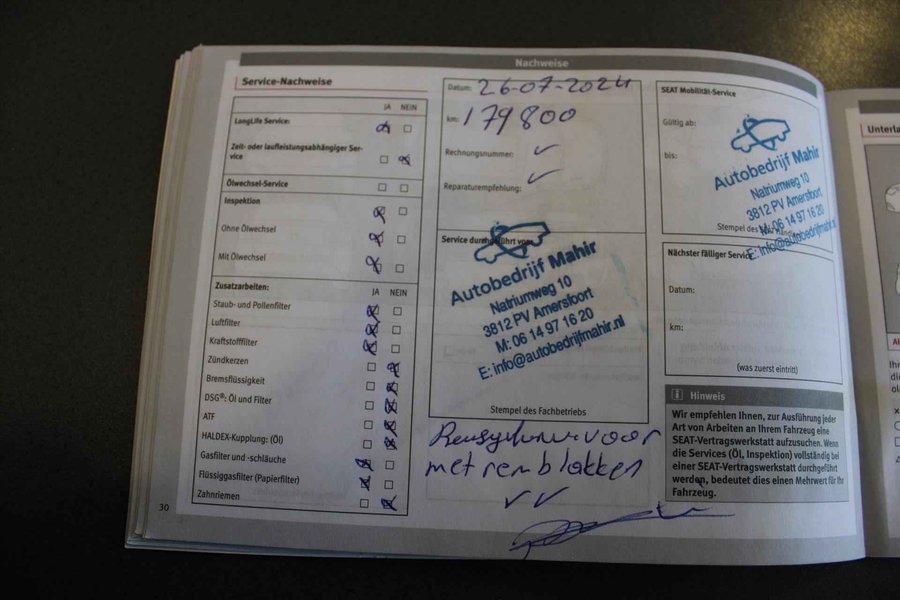 Nachweise
Service-Nachweise
JA NEIN
LongLife Service:
Zeit- oder laufleistungsabhängiger Ser-
vice
Ölwechsel-Service
Inspektion
Ohne Ölwechsel
Mit Ölwechsel
Zusatzarbeiten:
JA NEIN
Staub- und Pollenfilter
Luftfilter
Kraftstofffilter
Zündkerzen
Bremsflüssigkeit
DSG®: Öl und Filter
ATF
HALDEX-Kupplung: (Öl)
Gasfilter und -schläuche
Flüssiggasfilter (Papierfilter)
Zahnriemen
30
Datum: 26-07-2024
km: 179800
Rechnungsnummer:
Reparaturempfehlung:
Service durchgeführt von:
Autobedrijf Mahir
Natriumweg 10
3812 PV Amersfoort
M: 06 14 97 16 20
E: info@autobedrijfmahir.nl
Stempel des Fachbetriebs
voor
met remblokken
SEAT Mobilität-Service
Gültig ab:
bis:
Autobedrijf Mahir
Natriumweg 10
3812 PV Amersfoort
M: 06 14 97 16 20
E: info@autobedrijfmahir.
Stempel des
Nächster fälliger Service
Datum:
km:
(was zuerst eintritt)
Hinweis
Wir empfehlen Ihnen, zur Ausführung jeder
Art von Arbeiten an Ihrem Fahrzeug eine
SEAT-Vertragswerkstatt aufzusuchen. Wenn
die Services (Öl, Inspektion) vollständig bei
einer SEAT-Vertragswerkstatt durchgeführt
werden, bedeutet dies einen Mehrwert für Ihr
Fahrzeug.
Unterla